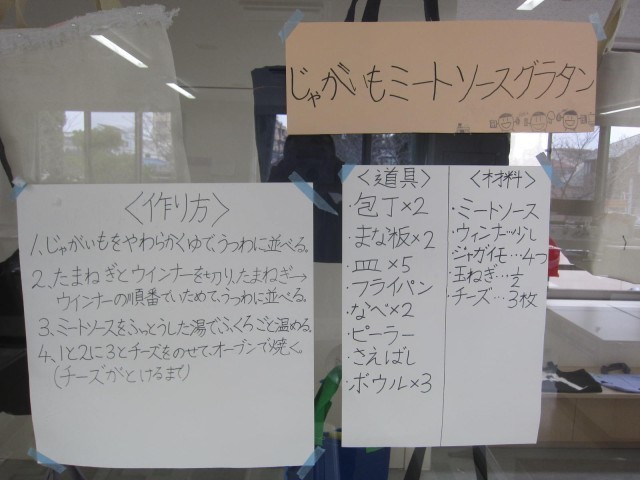 じゃがいもミートソースグラタン
〈作り方〉
1、じゃがいもをやわらかくゆで、うつわに並べる。
2、たまねぎとウインナーを切り、たまねぎ→
ウインナーの順番でいためて、うつわに並べる。
3、ミートソースをふっとうした湯でふくろごと温める。
4、1と2に3とチーズをのせて、オーブンで焼く。
(チーズがとけるまで)
〈道具〉
・包丁×2
・まな板×2
・皿×5
・フライパン
・なべ×2
・ピーラー
・さえばし
・ボウル×3
〈材料〉
・ミートソース
・ウィンナー…少し
・ジャガイモ…4つ
・玉ねぎ…½
・チーズ…3枚